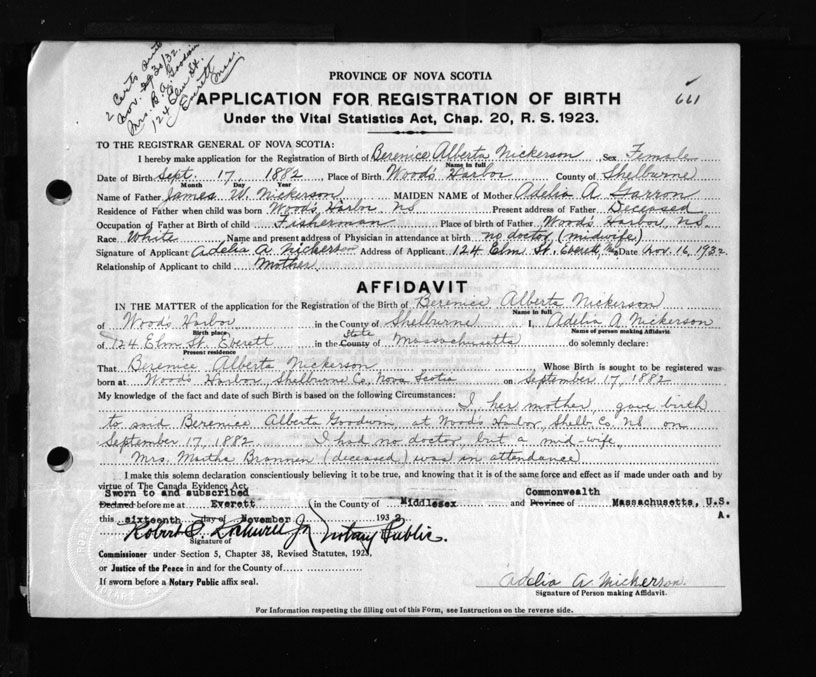 2 Certs sent
Nov. 30/32.
Mrs. B. A. Goodwin
124 Elm St.
Everett Mass.
661
PROVINCE OF NOVA SCOTIA
APPLICATION FOR REGISTRATION OF BIRTH
Under the Vital Statistics Act, Chap. 20, R. S. 1923.
TO THE REGISTRAR GENERAL OF NOVA SCOTIA:
I hereby make application for the Registration of Birth of Berenice Alberta Nickerson, Sex Female
Name in full
Date of Birth Sept. 17, 1882, Place of Birth Woods Harbor County of Shelburne
Month Day Year
Name of Father James W. Nickerson MAIDEN NAME of Mother Adelia A Garron
Residence of Father when child was born Woods Harbor, NS Present address of Father Deceased
Occupation of Father at Birth of child Fisherman Place of birth of Father Woods Harbor, N.S.
Race White Name and present address of Physician in attendance at birth no doctor (midwife)
Signature of Applicant Adelia A Nickerson Address of Applicant 124 Elm St. Everett, Date Nov. 16, 1932
Relationship of Applicant to child Mother.
AFFIDAVIT
IN THE MATTER of the application for the Registration of the Birth of Berenice Alberta Nickerson
Name in full
of Woods Harbor in the County of Shelburne I, Adelia A. Nickerson
Birth place, Name of person making Affidavit.
of 124 Elm St. Everett in the County of State Massachusetts do solemnly declare:
Present residence
That Berenice Alberta Nickerson Whose Birth is sought to be registered was
born at Woods Harbor Shelburne Co, Nova Scotia on September 17, 1882
My knowledge of the fact and date of such Birth is based on the following Circumstances: I, her mother, gave birth
to said Berenice Alberta Goodwin, at Woods Harbor, Shelb. Co. NS. on
September 17, 1882 I had no doctor, but a mid-wife,
Mrs. Martha Brannen (deceased) was in attendance
I make this solemn declaration conscientiously believing it to be true, and knowing that it is of the same force and effect as if made under oath and by
virtue of The Canada Evidence Act.
Sworn to and subscribed Commonwealth
Declared before me at Everett in the County of Middlesex and Province of Massachusetts, U.S.
this sixteenth day of November 1932 A.
Robert Jr. Notary Public.
Signature of
Commissioner under Section 5, Chapter 38, Revised Statutes, 1923,
or Justice of the Peace in and for the County of
If sworn before a Notary Public affix seal.
Adelia A. Nickerson.
Signature of Person making Affidavit.
For Information respecting the filling out of this Form, see Instructions on the reverse side.